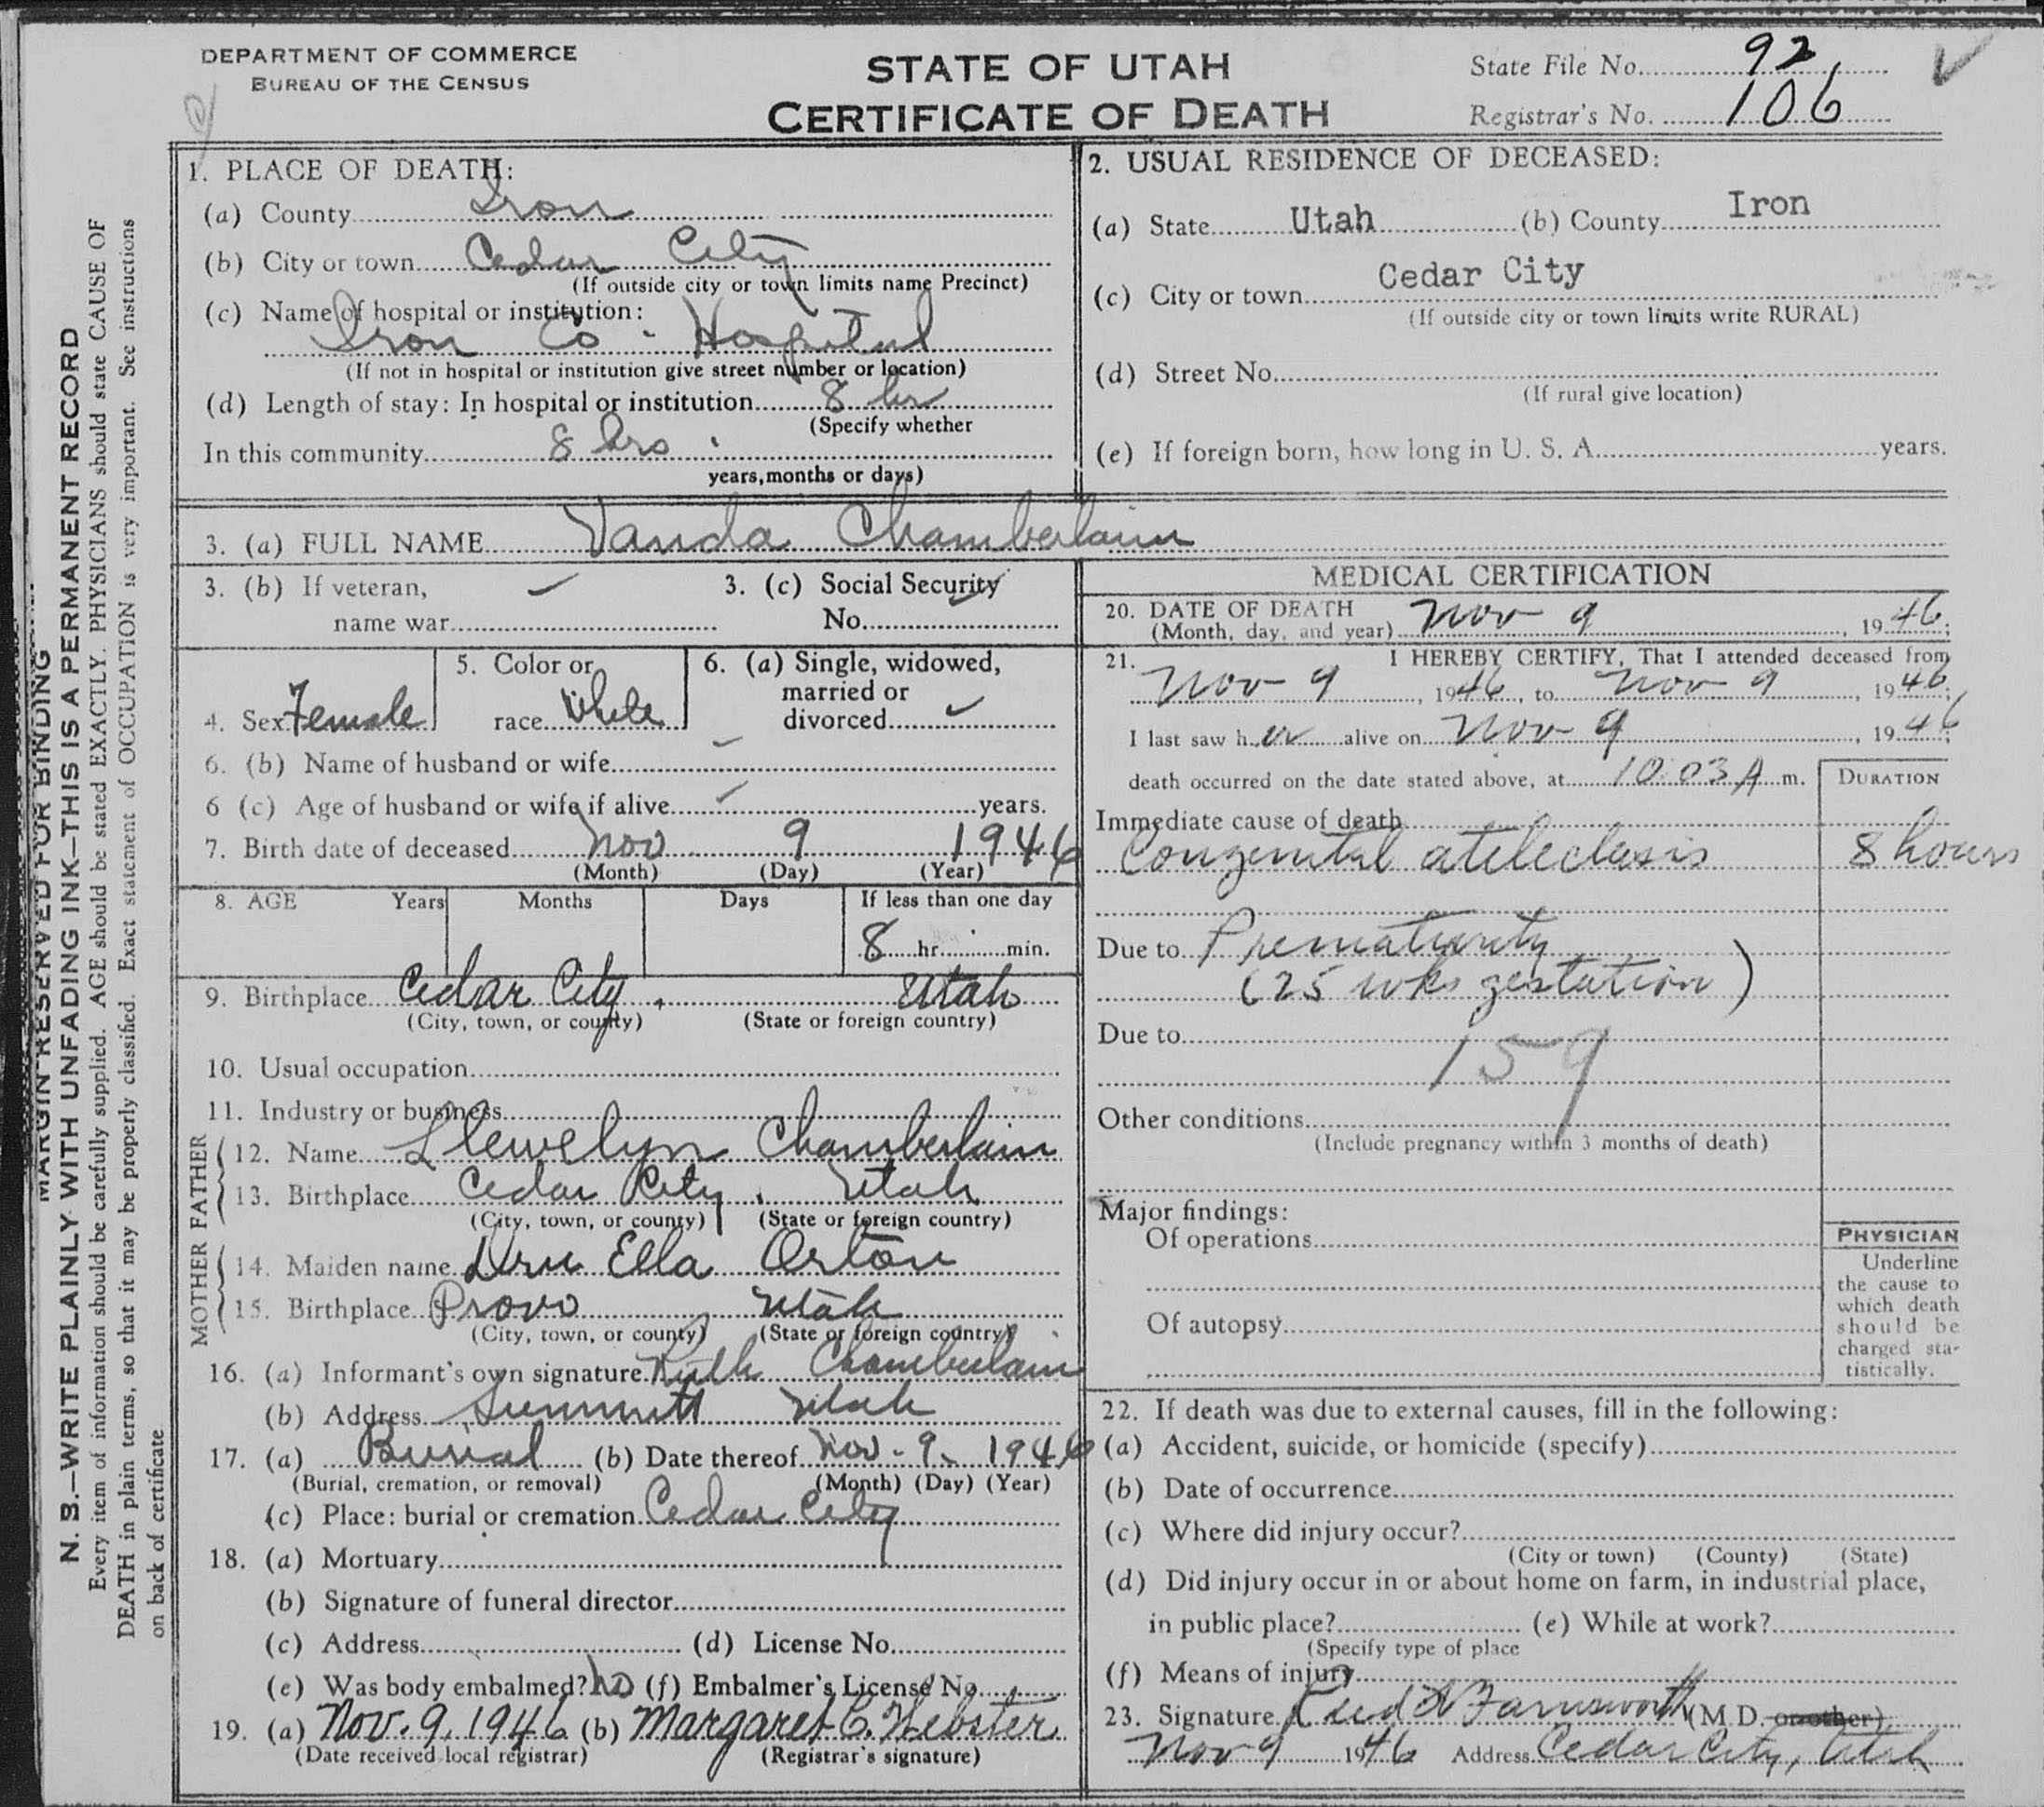 DEPARTMENT OF COMMERCE
BUREAU OF THE CENSUS
STATE OF UTAH
CERTIFICATE OF DEATH
State File No. 92
Registrar's No. 106
MARGIN RESERVED FOR BINDING
N. B.—WRITE PLAINLY WITH UNFADING INK—THIS IS A PERMANENT RECORD
Every item of information should be carefully supplied. AGE should be stated EXACTLY. PHYSICIANS should state CAUSE OF
DEATH in plain terms, so that it may be properly classified. Exact statement of OCCUPATION is very important. See instructions
on back of certificate
1. PLACE OF DEATH:
(a) County Iron
(b) City or town Cedar City
(If outside city or town limits name Precinct)
(c) Name of hospital or institution:
Iron Co. Hospital
(If not in hospital or institution give street number or location)
(d) Length of stay: In hospital or institution 8 hr
(Specify whether
In this community 8 hrs.
years, months or days)
2. USUAL RESIDENCE OF DECEASED:
(a) State Utah (b) County Iron
(c) City or town Cedar City
(If outside city or town limits write RURAL)
(d) Street No.
(If rural give location)
(e) If foreign born, how long in U. S. A. years.
3. (a) FULL NAME Vanda Chamberlain
3. (b) If veteran,
name war
3. (c) Social Security
No.
4. Sex Female
5. Color or
race White
6. (a) Single, widowed,
married or
divorced
6. (b) Name of husband or wife
6 (c) Age of husband or wife if alive years.
7. Birth date of deceased Nov 9 1946
(Month) (Day) (Year)
8. AGE Years Months Days If less than one day
8 hr. min.
9. Birthplace Cedar City, Utah
(City, town, or county) (State or foreign country)
10. Usual occupation
11. Industry or business
FATHER
12. Name Llewelyn Chamberlain
13. Birthplace Cedar City, Utah
(City, town, or county) (State or foreign country)
MOTHER
14. Maiden name Dru Ella Orton
15. Birthplace Provo Utah
(City, town, or county) (State or foreign country)
16. (a) Informant's own signature Ruth Chamberlain
(b) Address Summitt Utah
17. (a) Burial (b) Date thereof Nov. 9, 1946
(Burial, cremation, or removal) (Month) (Day) (Year)
(c) Place: burial or cremation Cedar City
18. (a) Mortuary
(b) Signature of funeral director
(c) Address (d) License No.
(e) Was body embalmed? no (f) Embalmer's License No.
19. (a) Nov. 9, 1946 (b) Margaret C. Webster
(Date received local registrar) (Registrar's signature)
MEDICAL CERTIFICATION
20. DATE OF DEATH
(Month, day, and year) Nov 9, 1946.
21. I HEREBY CERTIFY, That I attended deceased from
Nov 9, 1946, to Nov 9, 1946,
I last saw her alive on Nov 9, 1946;
death occurred on the date stated above, at 10:03 A m.
DURATION
Immediate cause of death
Congenital ateleclasis 8 hours
Due to Prematurity
(25 wks gestation)
Due to
159
Other conditions
(Include pregnancy within 3 months of death)
Major findings:
Of operations
Of autopsy
PHYSICIAN
Underline
the cause to
which death
should be
charged sta-
tistically.
22. If death was due to external causes, fill in the following:
(a) Accident, suicide, or homicide (specify)
(b) Date of occurrence
(c) Where did injury occur?
(City or town) (County) (State)
(d) Did injury occur in or about home on farm, in industrial place,
in public place? (e) While at work?
(Specify type of place
(f) Means of injury
23. Signature Farnsworth (M.D. or other)
Nov 9 1946 Address Cedar City, Utah